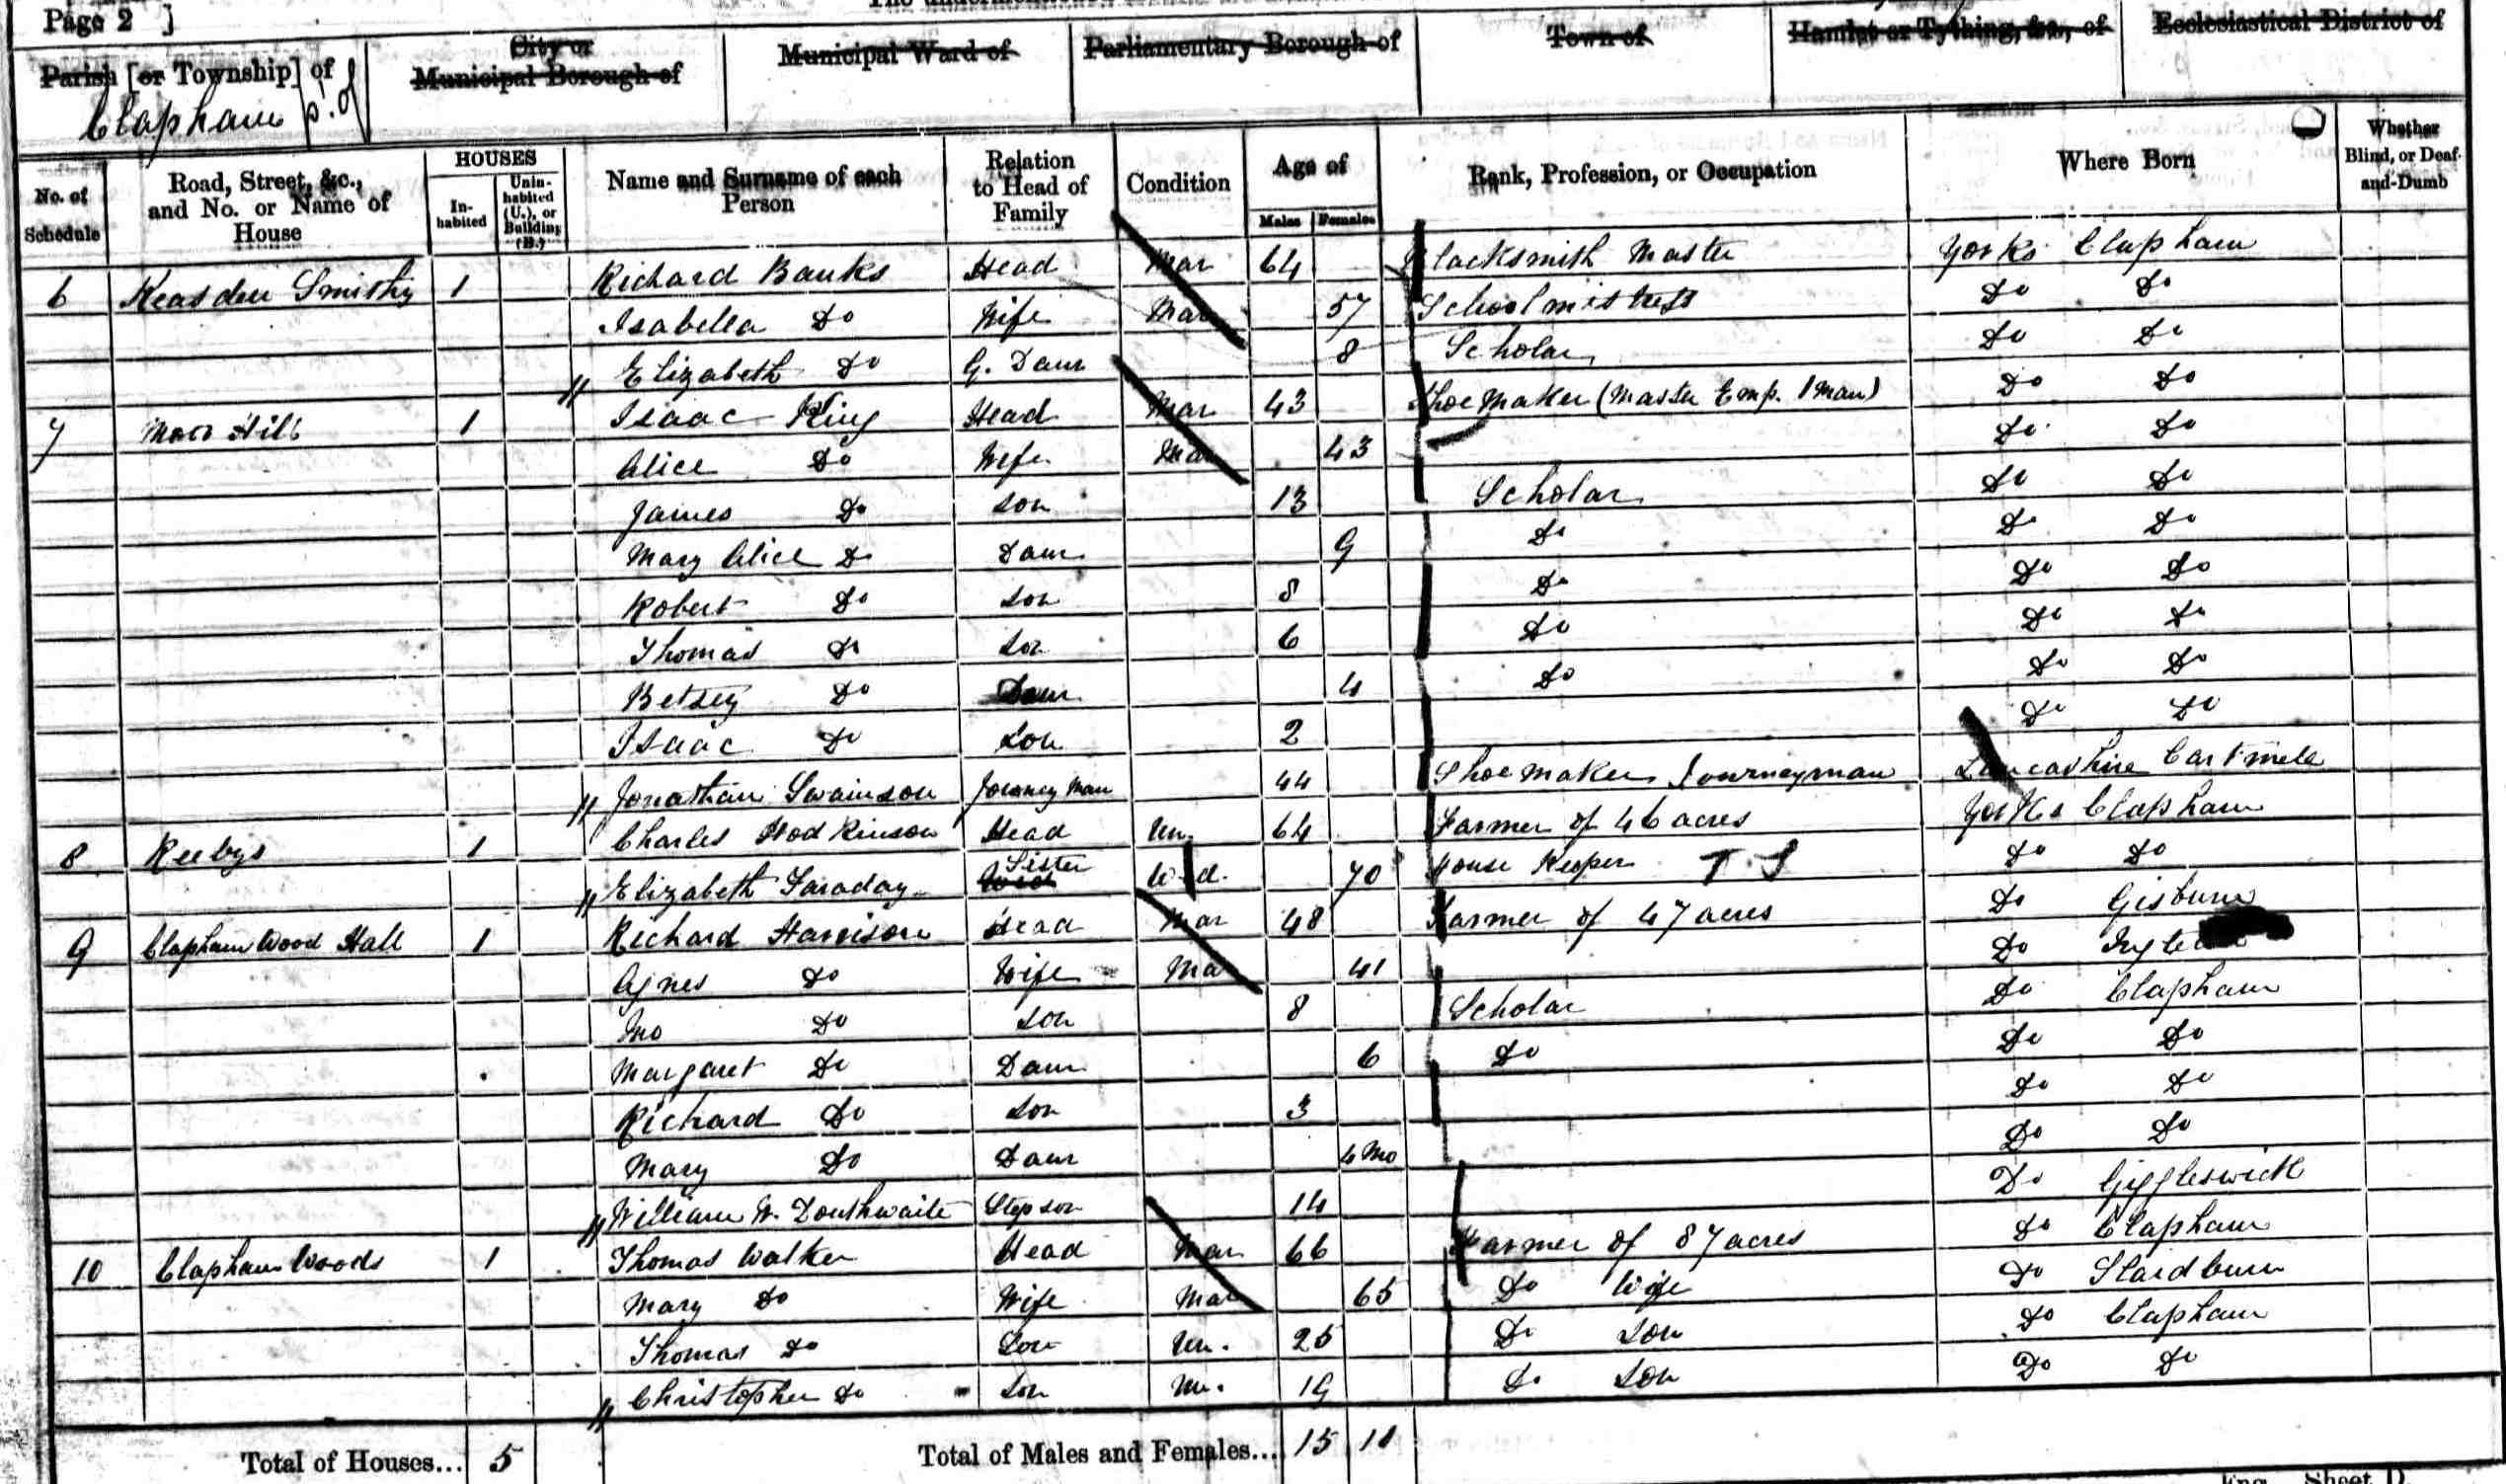 Page 2 ]
Parish [or Township] of
Clapham p. of
City or
Municipal Borough of
Municipal Ward of
Parliamentary Borough of
Town of
Hamlet or Tything, &c., of
Ecclesiastical District of
No. of Schedule
Road, Street, &c., and No. or Name of House
HOUSES
In-habited
Unin-habited (U.), or Building (B.)
Name and Surname of each Person
Relation to Head of Family
Condition
Age of
Males
Females
Rank, Profession, or Occupation
Where Born
Whether Blind, or Deaf-and-Dumb
6 Keasden Smithy 1 Richard Banks Head Mar 64 Blacksmith Master Yorks Clapham
Isabella Do Wife Mar 57 Schoolmistress Do Do
Elizabeth Do G. Daur 8 Scholar Do Do
7 Moss Hill 1 Isaac King Head Mar 43 Shoemaker (Master Emp. 1 Man) Do Do
Alice Do Wife Mar 43 Do Do
James Do Son 13 Scholar Do Do
Mary Alice Do Daur 9 Do Do Do
Robert Do Son 8 Do Do Do
Thomas Do Son 6 Do Do Do
Betsey Do Daur 4 Do Do Do
Isaac Do Son 2 Do Do
Jonathan Swainson Journey Man 44 Shoemaker Journeyman Lancashire Cartmele
8 Reebys 1 Charles Hodkinson Head Un. 64 Farmer of 46 acres Yorks Clapham
Elizabeth Faraday Sister Wd. 70 House Keeper Do Do
9 Clapham Wood Hall 1 Richard Harrison Head Mar 48 Farmer of 47 acres Do Gisburn
Agnes Do Wife Mar 41 Do
Jno Do Son 8 Scholar Do Clapham
Margaret Do Daur 6 Do Do Do
Richard Do Son 3 Do Do
Mary Do Daur 4 Mo Do Do
William W. Douthwaite Stepson 14 Do Giggleswick
10 Clapham Woods 1 Thomas Walker Head Mar 66 Farmer of 87 acres Do Clapham
Mary Do Wife Mar 65 Do Wife Do Slaidburn
Thomas Do Son Un. 25 Do Son Do Clapham
Christopher Do Son Un. 19 Do Son Do Do
Total of Houses... 5
Total of Males and Females... 15 11